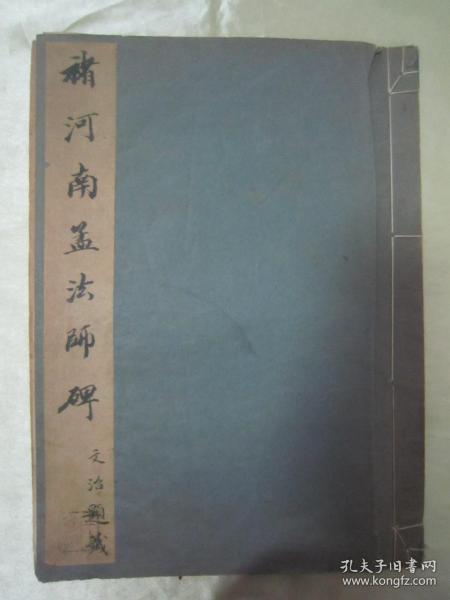 褚河南孟法師碑
文治題籤
孔夫子旧书网
www.kongfz.com